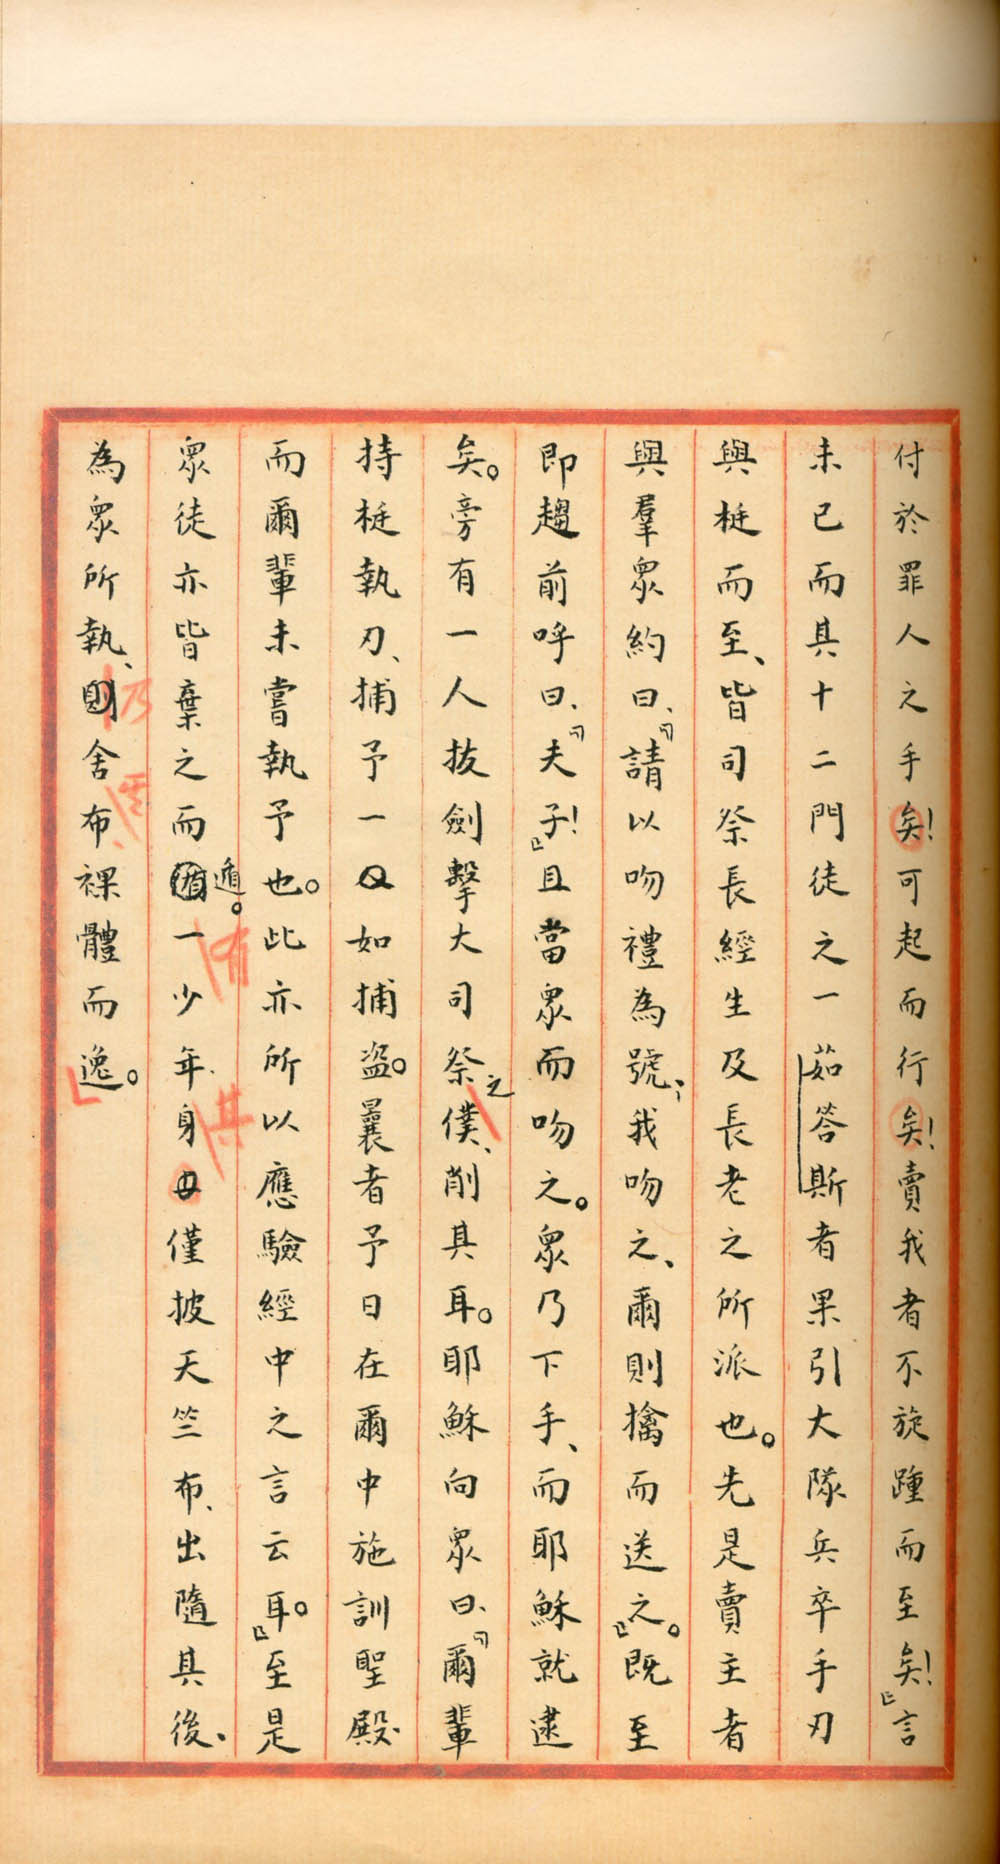 付於罪人之手矣!可起而行矣!賣我者不旋踵而至矣!』言
未已而其十二門徒之一茹答斯者果引大隊兵卒手刃
與梃而至、皆司祭長經生及長老之所派也。先是賣主者
與羣眾約曰、『請以吻禮為號;我吻之、爾則擒而送之。』既至
即趨前呼曰、『夫子!』且當眾而吻之。眾乃下手、而耶穌就逮
矣。旁有一人拔劍擊大司祭之僕、削其耳。耶穌向眾曰、『爾輩
持梃執刃、捕予一如捕盜。曩者予日在爾中施訓聖殿
而爾輩未嘗執予也。此亦所以應驗經中之言云耳。』至是
眾徒亦皆棄之而遁。有一少年、身其僅披天竺布、出隨其後、
為眾所執、則乃舍布、裸體而逸。